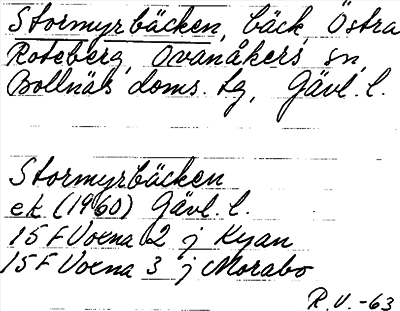 Stormyrbäcken, bäck Östra
Roteberg, Ovanåkers sn,
Bollnäs doms. tg, Gävl. l.
Stormyrbäcken
ek. (1960) Gävl. l.
15 F Voxna 2 j Kyan
15 F Voxna 3 j Morabo
R.V. -63